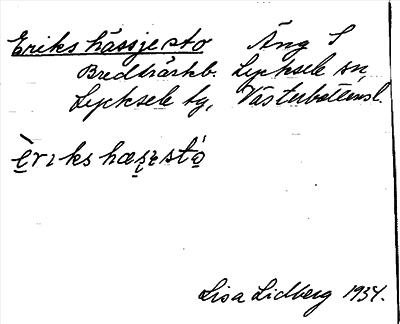 Eriks hässjesto Äng S
Bredträskb. Lycksele sn,
Lycksele tg, Västerbottensl.
Lisa Lidberg 1934.